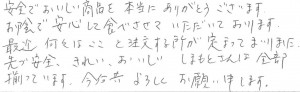 安全でおいしい商品を本当にありがとうございます。
お陰で安心して食べさせていただいております。
最近 何それはここと注文する所が定まってまいりました。
先づ安全、きれい、おいしい しまもとさんは全部
揃っています。今后共よろしくお願い申します。